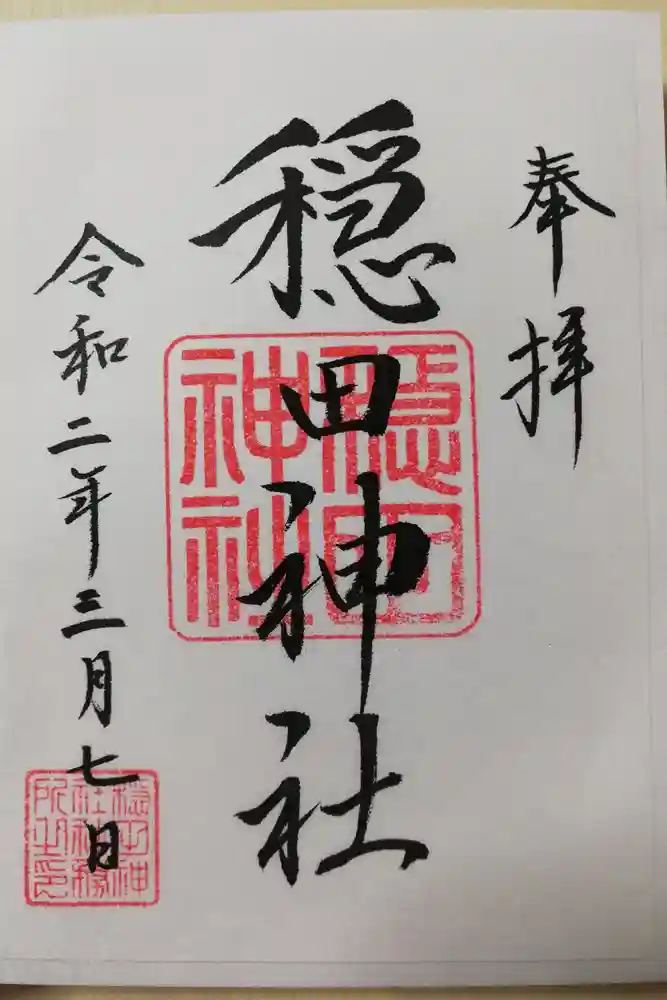 奉拝
穏田神社
令和二年三月七日
穏田神社
穏田神社社務所之印